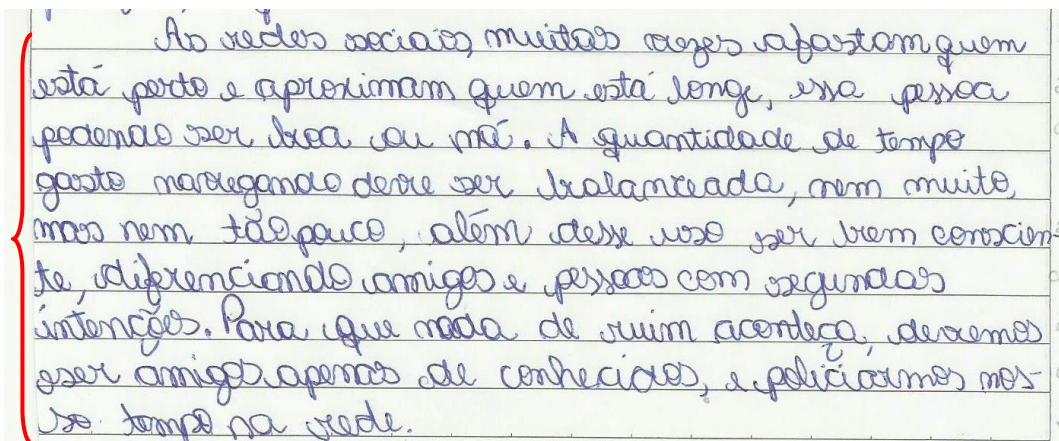 As redes sociais, muitas vezes afastam quem
está perto e aproximam quem está longe, essa pessoa
podendo ser boa ou má. A quantidade de tempo
gasto navegando deve ser balanceada, nem muito,
mas nem tão pouco, além desse uso ser bem conscien-
te, diferenciando amigos e pessoas com segundas
intenções. Para que nada de ruim aconteça, devemos
ser amigos apenas de conhecidos, e policiarmos nos-
so tempo na rede.